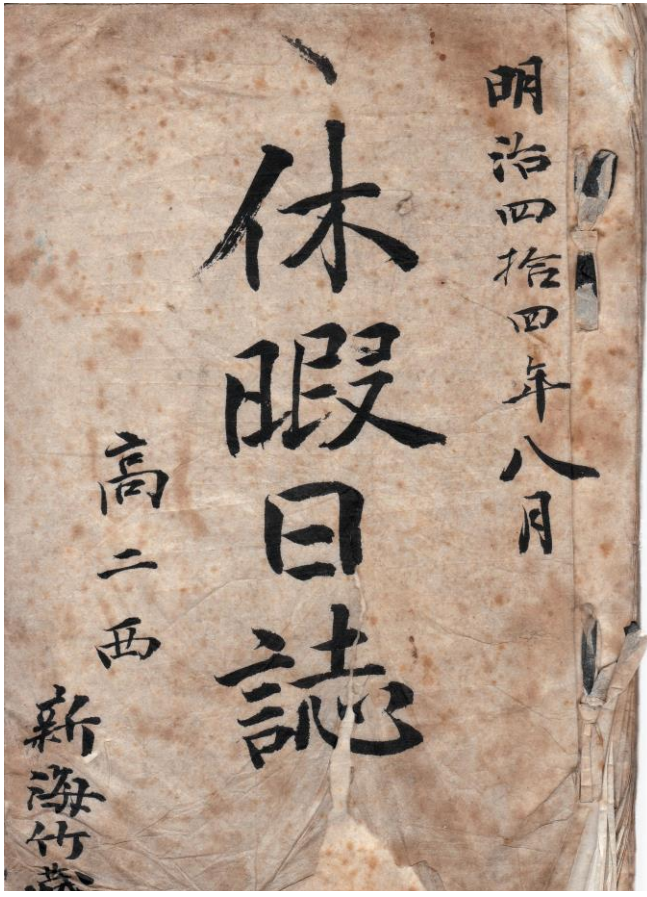 明治四拾四年八月
休暇日誌
高二西
新海竹蔵